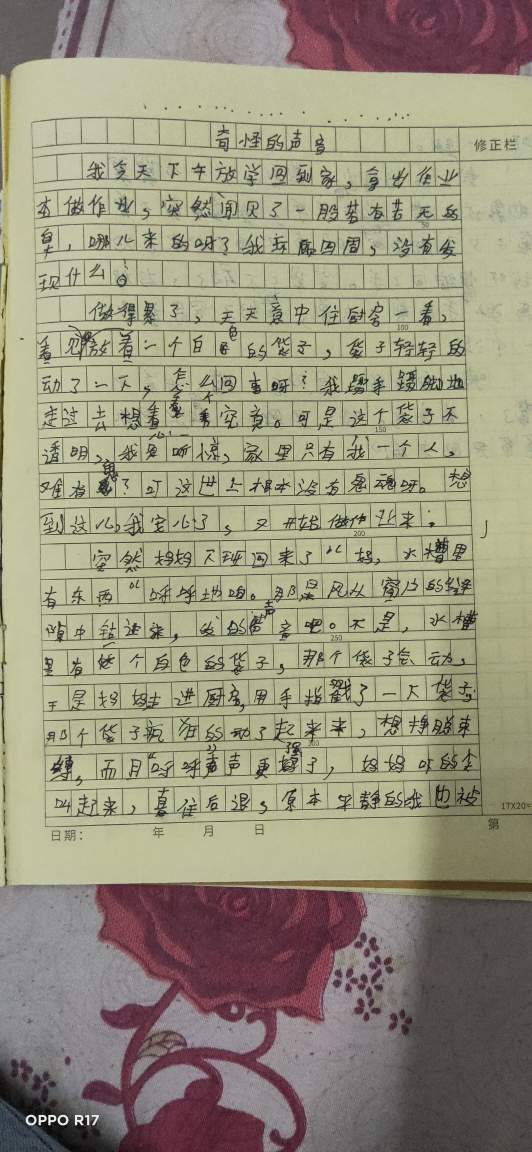 奇怪的声音
修正栏
我今天下午放学回到家，拿出作业
本做作业，突然闻见了一股若有若无的
臭，哪儿来的呀？我环顾四周，没有发
现什么。
做得累了，无意中往厨房一看，
看见放着一个白色的袋子，袋子轻轻的
动了一下，怎么回事呀？我蹑手蹑脚地
走过去想看看究竟。可是这个袋子不
透明，我心一惊，家里只有我一个人，
难有鬼？可这世上根本没有鬼魂呀。想
到这儿，我安心了，又开始做作业来。
突然妈妈下班回来了“妈，水槽里
有东西“呼呼地响。那是风从窗户的缝
隙中钻进来，发的声音吧。不是，水槽
里有个白色的袋子，那个袋子会动，
于是妈妈走进厨房，用手指戳了一下袋子，
那个袋子疯狂的动了起来，想挣脱束
缚，而且“呼呼”声更强了，妈妈吓的尖
叫起来，直往后退，原本平静的我也被
100
150
200
250
300
17X20=
日期： 年 月 日
第
OPPO R17